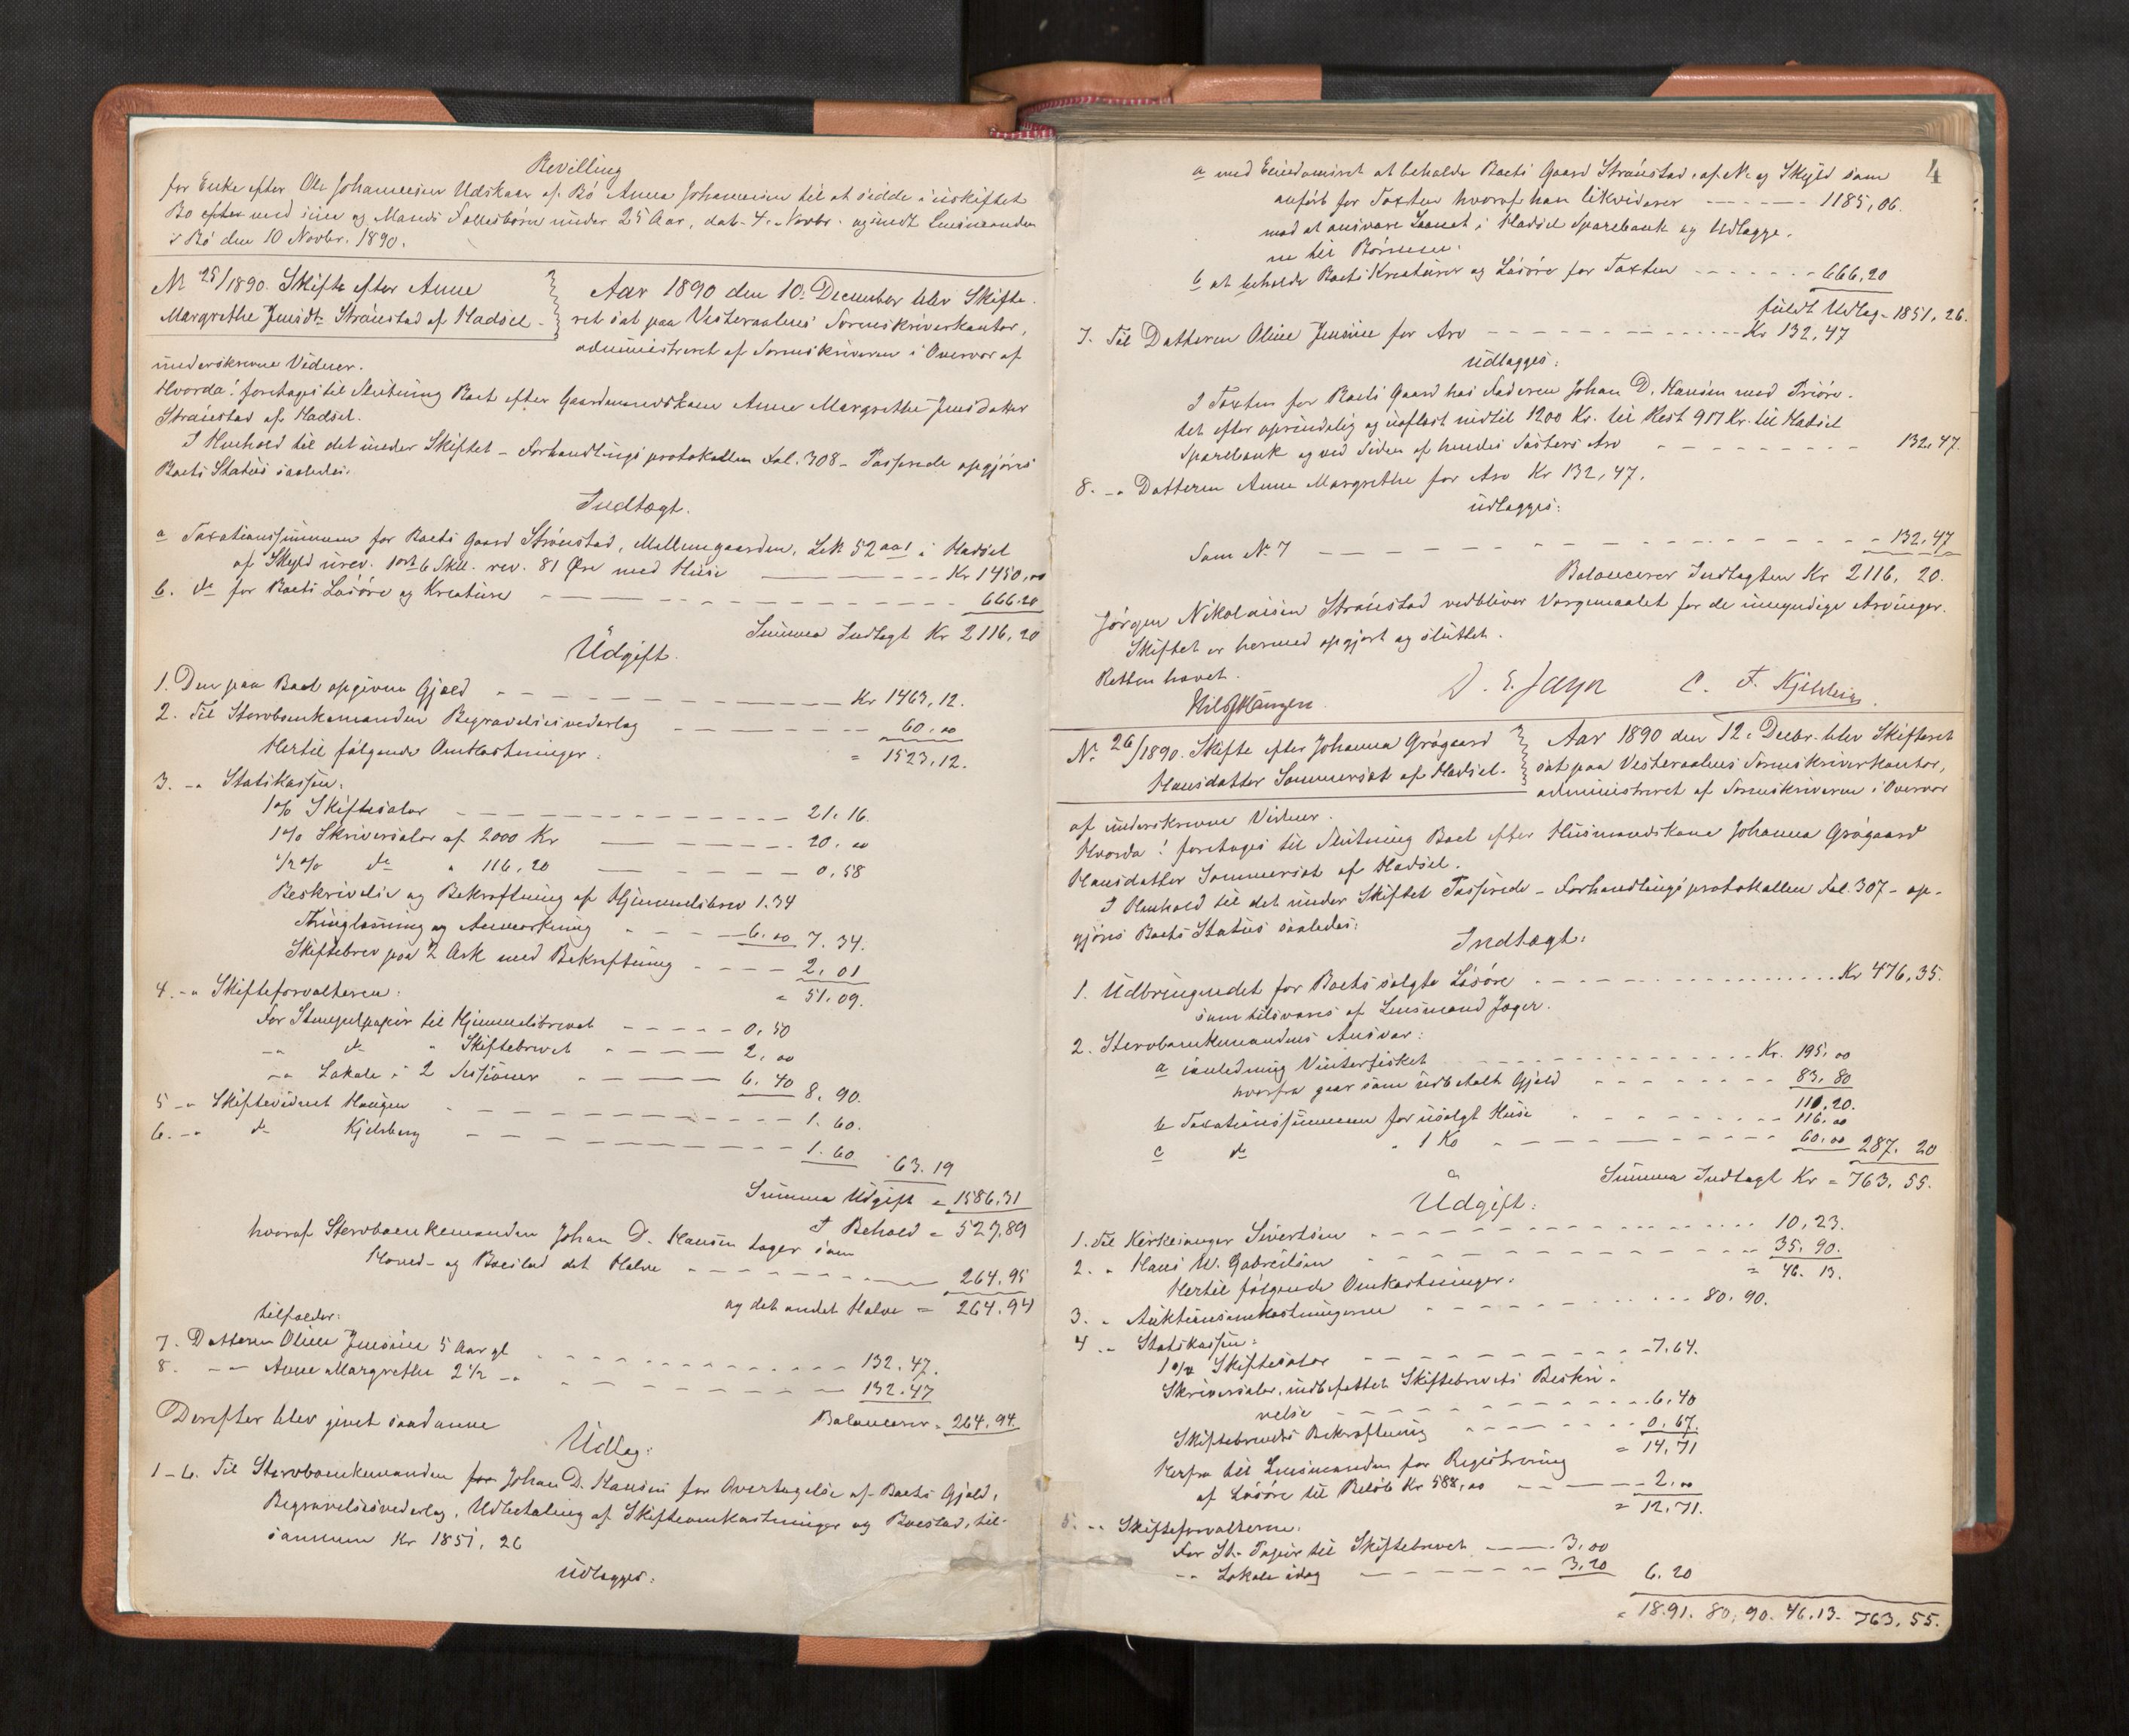 Bevilling
for Enke efter Ole Johannesen Udskaar af Bö Anna Johannesen til at sidde i uskiftet
Bo efter med sine og Mands Fællesbörn under 25 Aar, dat. 4. Novbr. og indt. Lensmanden
i Bö den 10 Novbr. 1890.
No 25/1890. Skifte efter Anne
Margrethe Jensdtr Strönstad af Hadsel.
Aar 1890 den 10. December blev Skifte-
ret sat paa Vesteraalens Sorenskriverkontor,
administreret af Sorenskriveren i Overvær af
underskrevne Vidner.
Hvorda! foretoges til Slutning Boet efter Gaardmandskone Anne Margrethe Jensdatter
Strönstad af Hadsel.
I Henhold til det under Skiftet - Forhandlingsprotokollen Fol. 308 - Passerede opgjöres
Boets Status saaledes:
Indtægt.
a Taxationssummen for Boets Gaard Strönstad, Mellemgaarden, L.No 52 aa1 i Hadsel
af Skyld urev. 1 ort 6 Skill. rev. 81 Öre med Huse Kr 1450,00
b. do for Boets Lösöre og Kreature 666.20
Summa Indtægt Kr 2116,20
Udgift.
1. Den paa Boet opgivne Gjæld Kr 1463,12.
2. Til Stervboenkemanden Begravelsesvederlag 60,00
Hertil fölgende Omkostninger: = 1523,12.
3. -" Statskassen:
1% Skiftesalar 21.16.
1% Skriversalar af 2000 Kr 20.00
1/2% do " 116,20 0,58
Beskrivelse og Bekræftning af Hjemmelsbrev 1.34
Thinglæsning og Anmærkning 6.00 7.34.
Skiftebrev paa 2 Ark med Bekræftning 2,01
= 51,09.
4. -" Skifteforvalteren:
For Stempelpapir til Hjemmelsbrevet 0,50
-" do " Skiftebrevet 2,00
-" Lokale i 2 Sessioner 6.40 8,90.
5 -" Skiftevidnet Haugen 1.60.
6. -" do Kjelsberg 1.60 63.19
Summa Udgift = 1586,31
I Behold = 529,89
hvoraf Stervboenkemanden Johan D. Hansen tager som
Hoved- og Boeslod det Halve 264,95
og det andet Halve = 264,94
tilfalder:
7. Datteren Oline Jensine 5 Aar gl 132.47.
8. -"- Anne Margrethe 2 1/2 -" 132.47
Balancerer = 264,94.
Derefter blev givet saadanne
Udlæg:
1-6. Til Stervboenkemanden for Johan D. Hansen for Overtagelse af Boets Gjæld,
Begravelsesvederlag, Udbetaling af Skifteomkostninger og Boeslod, til-
sammen Kr 1851,26
udlægges:
4
a med Eiendomsret at beholde Boets Gaard Strönstad, af No og Skyld som
anfört for Taxten hvoraf han likviderer 1185,06.
mod at ansvare Laanet i Hadsel Sparebank og Udlægge-
ne til Börnene.
b at beholde Boets Kreaturer og Lösöre for Taxten 666,20
fuldt Udlæg 1851,26.
7. Til Datteren Oline Jensine for Arv Kr 132,47
udlægges:
I Taxten for Boets Gaard hos Faderen Johan D. Hansen med Priöre-
tet efter oprindelig og uaflöst indtil 1200 Kr. til Rest 917 Kr. til Hadsel
Sparebank og ved Siden af hendes Sösters Arv 132,47.
8. -" Datteren Anne Margrethe for Arv Kr 132,47.
udlægges:
Som No 7 132,47
Balancerer Indtægten Kr 2116,20.
Jörgen Nikolaisen Strönstad vedbliver Værgemaalet for de umyndige Arvinger.
Skiftet er hermed opgjort og sluttet.
Retten hævet.
C. F. Kjelsberg
No 26/1890. Skifte efter Johanna Grögaard
Hansdatter Sommerset af Hadsel.
Aar 1890 den 12. Decbr. blev Skifteret
sat paa Vesteraalens Sorenskriverkontor,
administreret af Sorenskriveren i Overvær
af underskrevne Vidner.
Hvorda! foretoges til Slutning Boet efter Husmandskone Johanna Grögaard
Hansdatter Sommerset af Hadsel.
I Henhold til det under Skiftet Passerede - Forhandlingsprotokollen Fol. 307 - op-
gjöres Boets Status saaledes:
Indtægt:
1. Udbringendet for Boets solgte Lösöre Kr 476,35.
som tilsvares af Lensmand Jæger.
2. Stervboenkemandens Ansvar:
a i anledning Vinterfisket Kr. 195,00
hvorfra gaar som udbetalt Gjæld 83,80
111,20.
b Taxationssummen for usolgt Huse 116,00
c do " 1 Ko 60,00 287,20
Summa Indtægt Kr = 763,55.
Udgift:
1. Til Kirkesanger Sivertsen 10,23.
2. " Hans W. Gabrielsen 35,90.
Hertil fölgende Omkostninger: = 46.13.
3. " Auktionsomkostningerne 80.90.
4 -" Statskassen:
1% Skiftesalar 7,64.
Skriversalar, indbefattet Skiftebrevets Beskri-
velse 6,40
Skiftebrevets Bekræftning 0,67.
= 14,71
Herfra til Lensmanden for Registrering
af Lösöre til Belöb Kr 588,00 2,00
= 12,71.
5. -" Skifteforvalteren:
For St. Papir til Skiftebrevet 3,00
-" Lokale idag 3,20 6.20
= 18.91. 80,90. 46.13. 763,55.